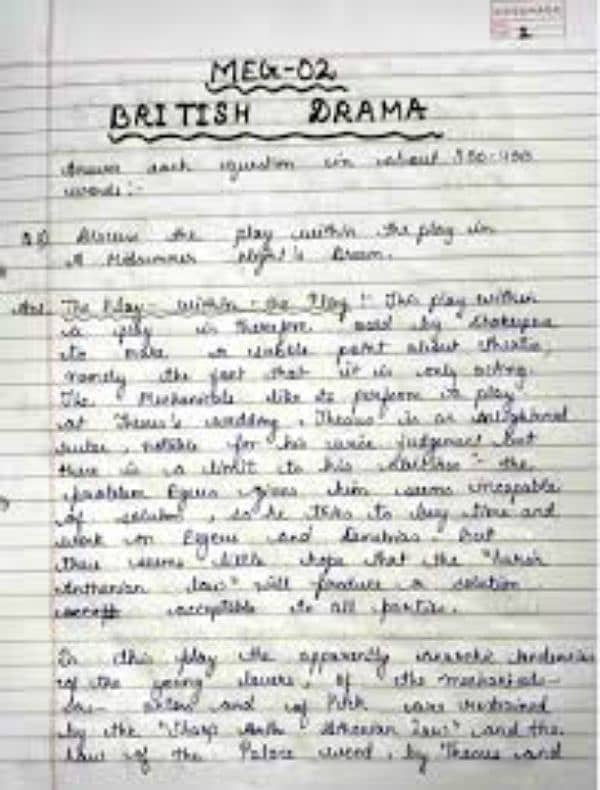 2
MEG-02
BRITISH DRAMA
Answer each question in about 350-450
words:-
Discuss the play within the play in
A Midsummer Night's Dream.
Ans. The Play- within- the Play :- This play within
a play is therefore used by
to make a subtle point about theatre,
namely the fact that it is only acting.
The Mechanicals like to perform a play
at Theseus's wedding, Theseus is an enlightened
ruler, notable for his wise judgement but
there is a limit to his :- the
problem Egeus gives him seems incapable
of solution, so he tries to buy time and
work on Egeus and Demetrius. But
there seems little hope that the "harsh
law" will produce a solution
acceptable to all parties.
In this play the apparently anarchic tendencies
of the young lovers, of the mechanicals-
as- actors and of Puck are restrained
by the "sharp Athenian law" and the
law of the Palace wood, by Theseus and